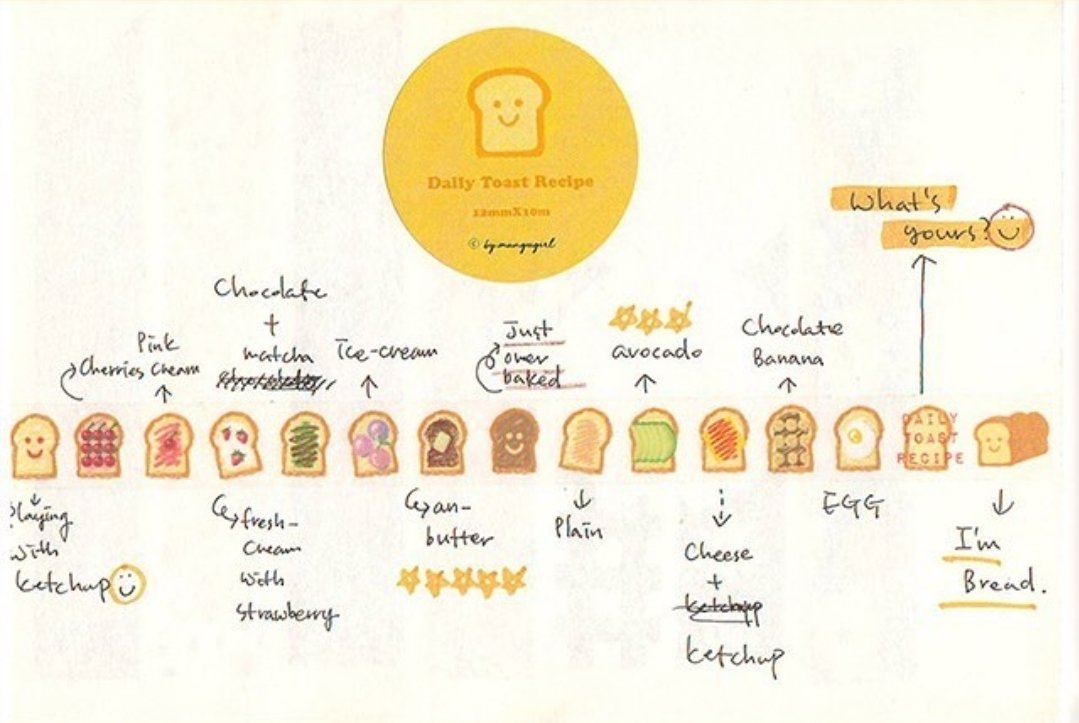 Daily Toast Recipe
12mmX10m
© by.mangugirl
What's
yours?
Chocolate
+
matcha
Pink
Cherries Cream
Ice-cream
Just
over
baked
avocado
Chocolate
Banana
DAILY
TOAST
RECIPE
Playing
with
ketchup
fresh-
cream
with
strawberry
an-
butter
Plain
Cheese
+
ketchup
ketchup
EGG
I'm
Bread.